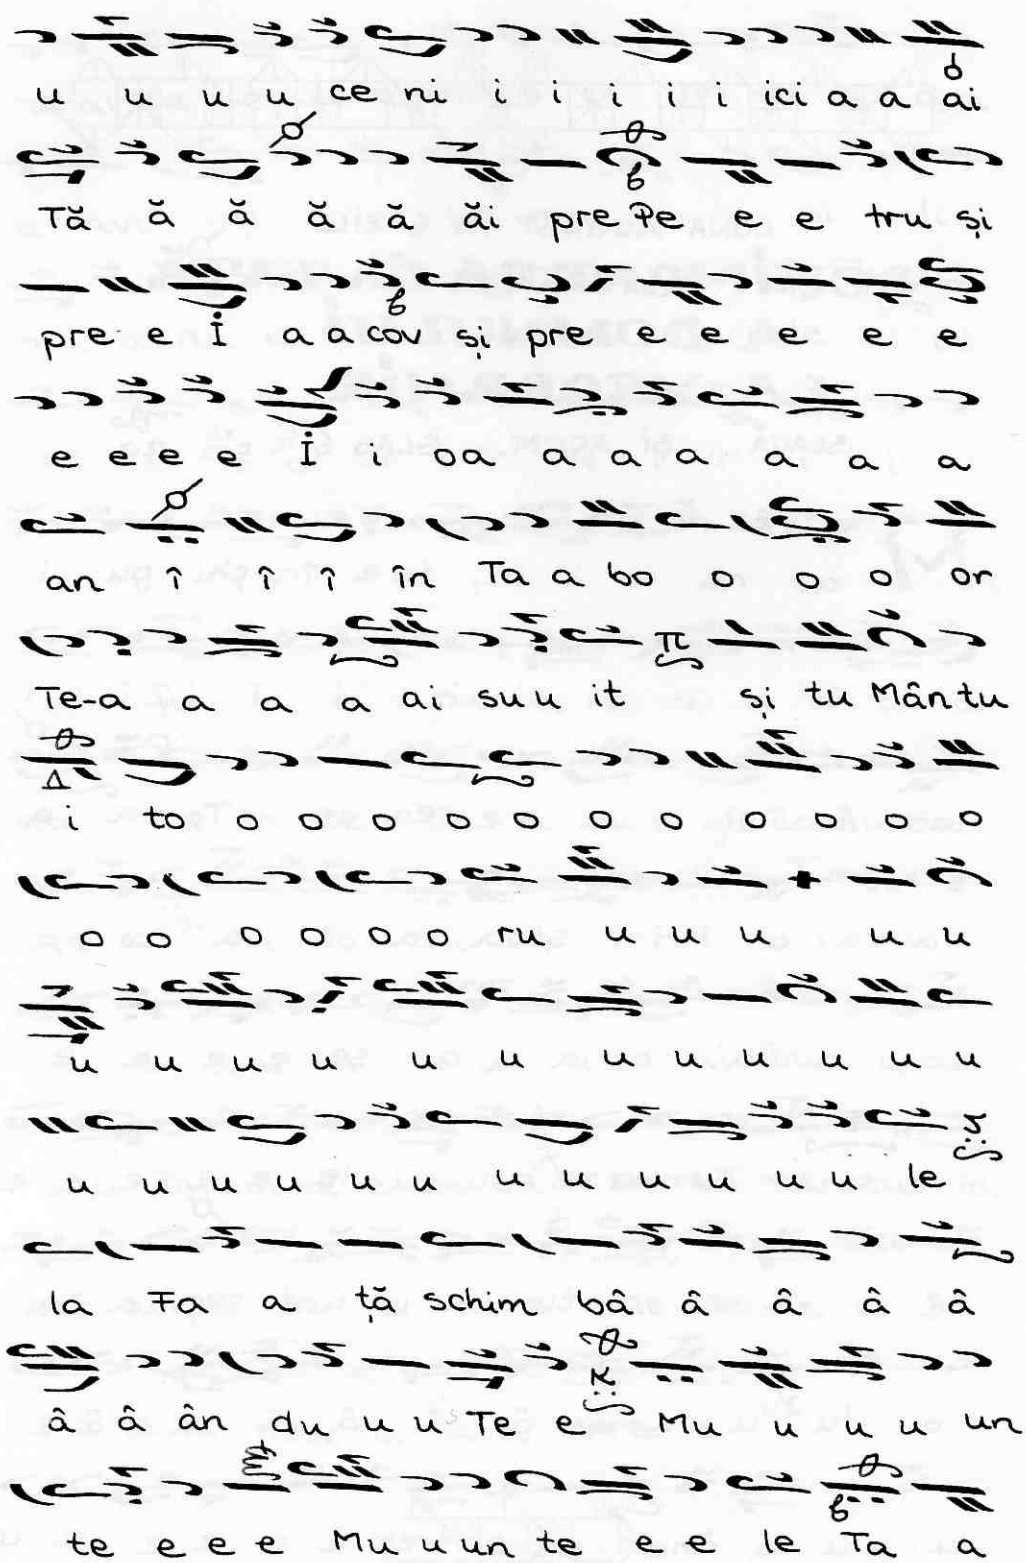 u u u u ce ni i i i i i ici a a ai
Tă ă ă ă ă ăi pre Pe e e tru și
pre e I a a cov și pre e e e e e
e e e e I i oa a a a a a a
an î î î în Ta a bo o o o or
Te-a a a a ai su u it și tu Mântu
i to o o o o o o o o o o o
o o o o o o ru u u u u u
u u u u u u u u u u u u
u u u u u u u u u u u le
la Fa a ță schim bâ â â â â
â â ân du u u Te e Mu u u u un
te e e e Mu u un te e e le Ta a